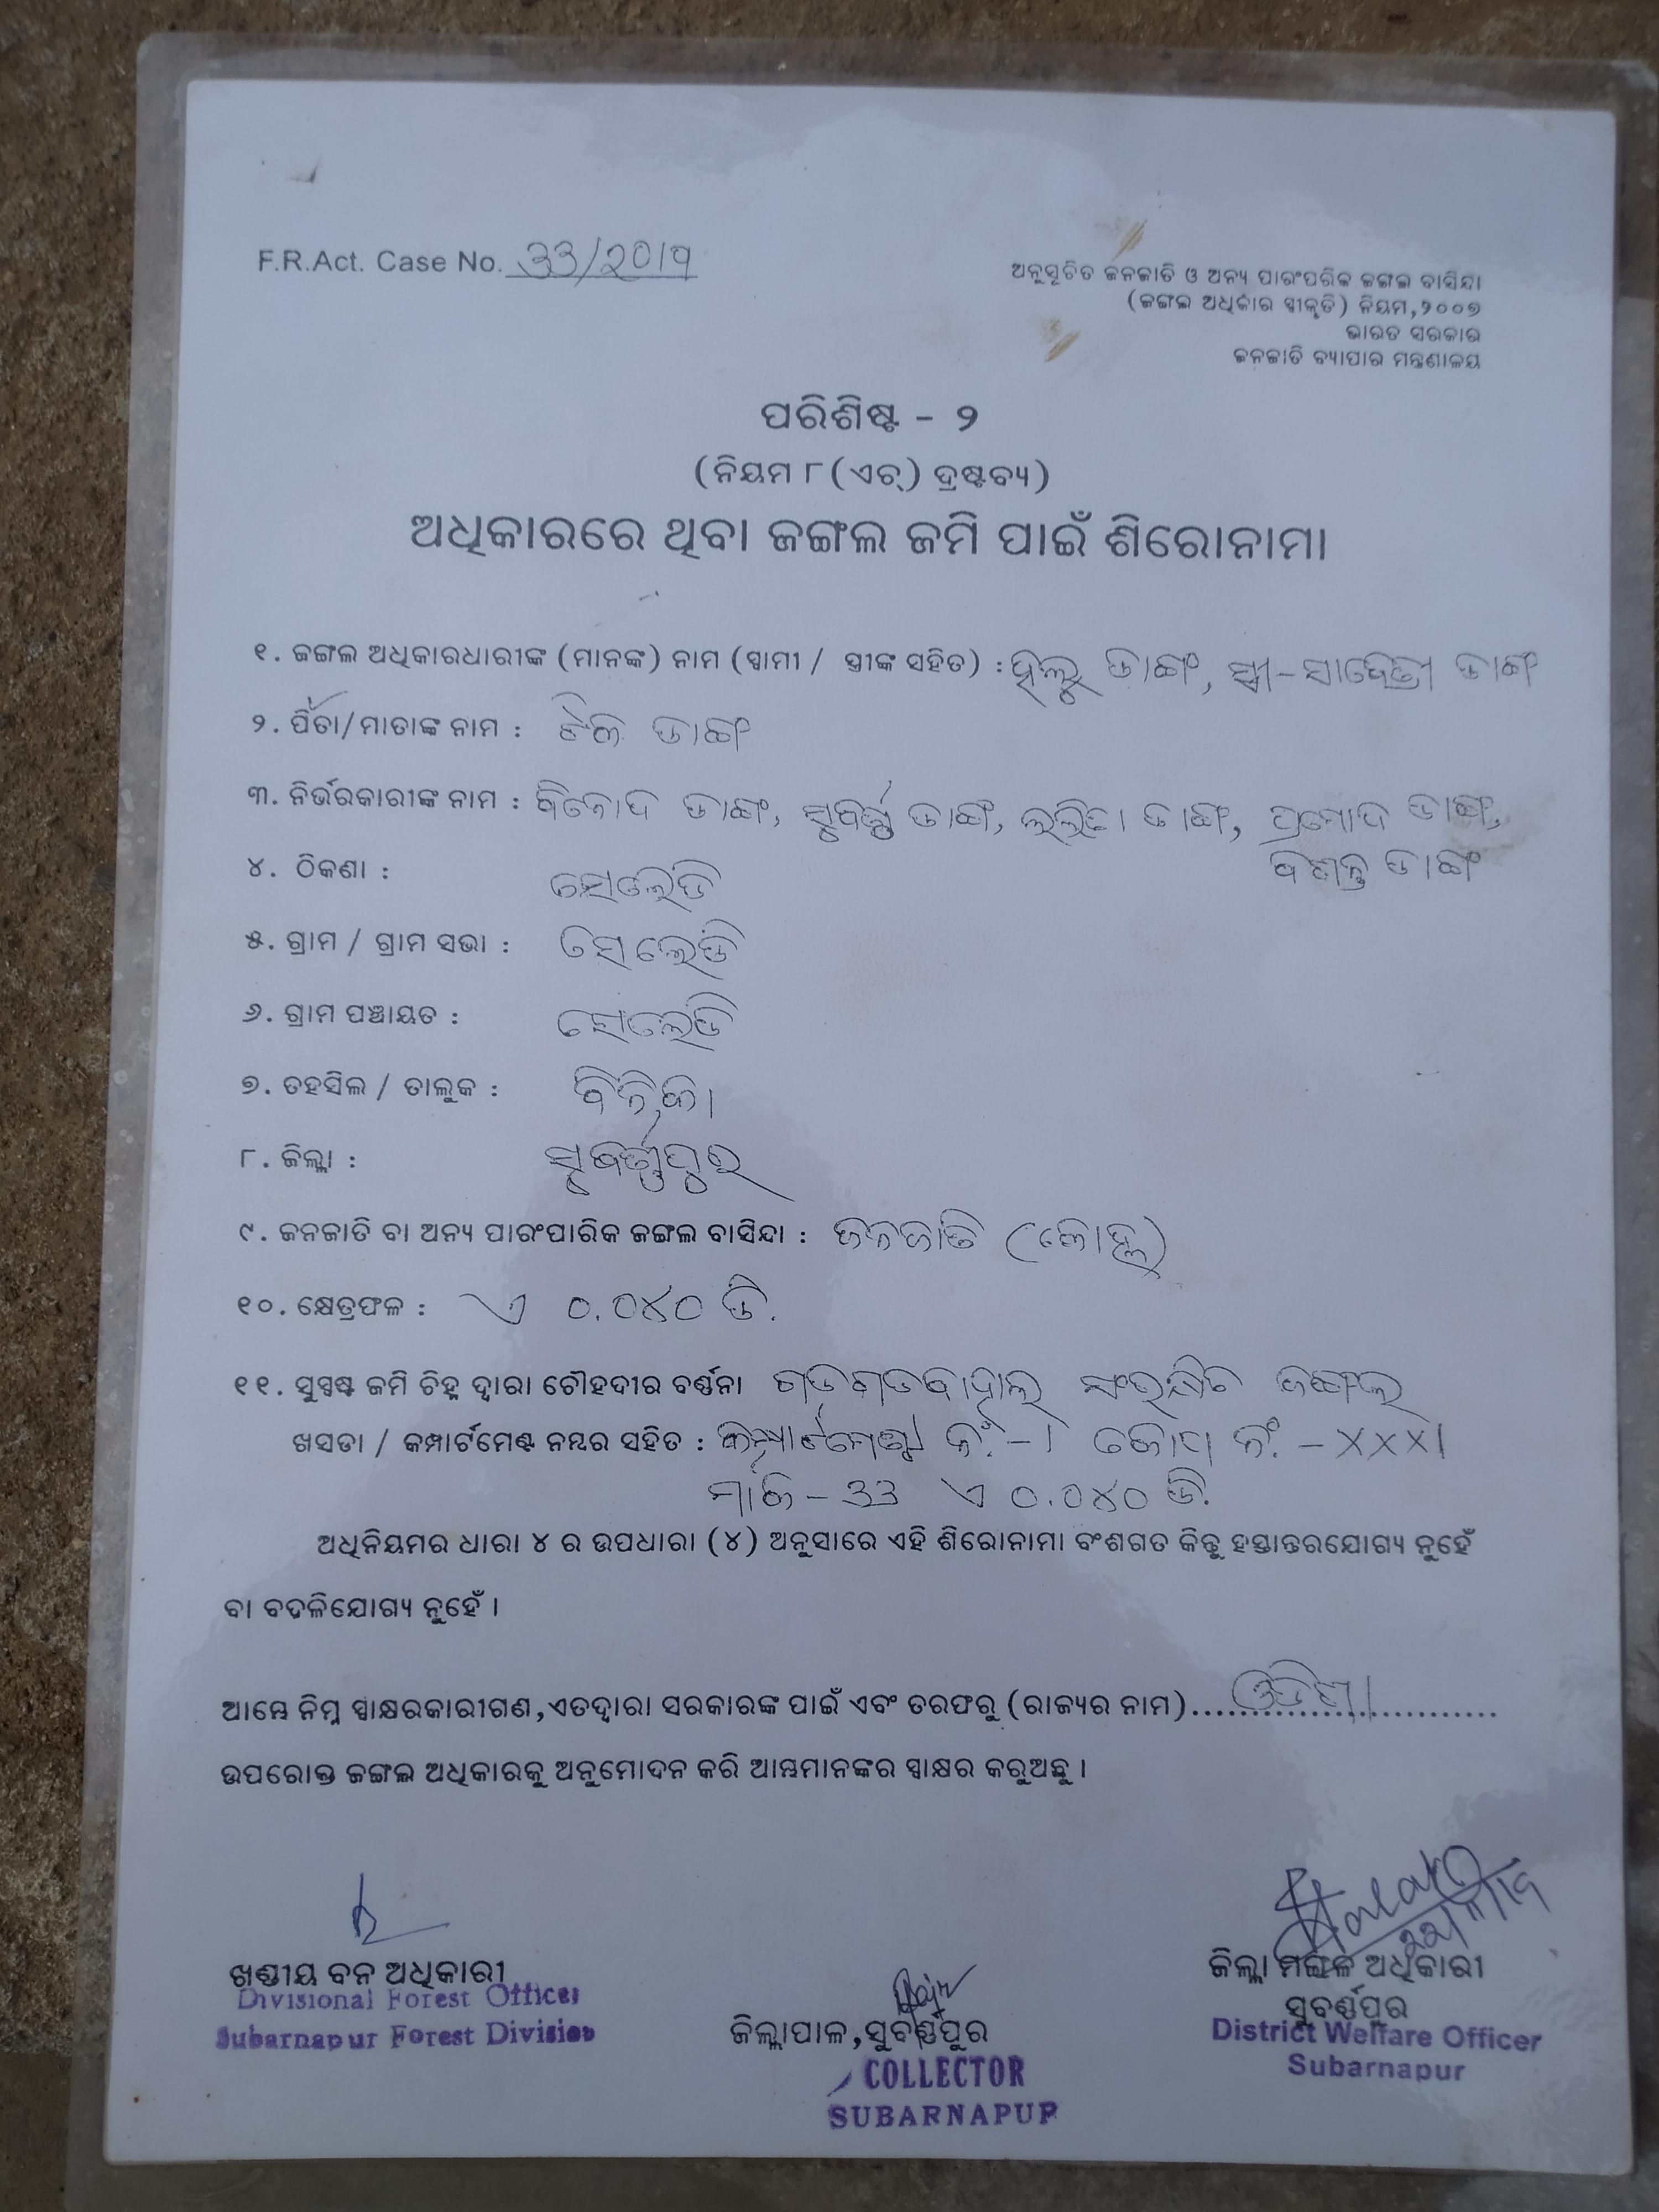 F.R.Act. Case No. ୩୩/୨୦୧୩
ଅନୁସୂଚିତ ଜନଜାତି ଓ ଅନ୍ୟ ପାରଂପରିକ ଜଙ୍ଗଲ ବାସିନ୍ଦା
(ଜଙ୍ଗଲ ଅଧିକାର ସ୍ୱୀକୃତି) ନିୟମ,୨୦୦୭
ଭାରତ ସରକାର
ଜନଜାତି ବ୍ୟାପାର ମନ୍ତ୍ରଣାଳୟ
ପରିଶିଷ୍ଟ - ୨
(ନିୟମ ୮ (ଏଚ୍) ଦ୍ରଷ୍ଟବ୍ୟ)
ଅଧିକାରରେ ଥିବା ଜଙ୍ଗଲ ଜମି ପାଇଁ ଶିରୋନାମା
୧. ଜଙ୍ଗଲ ଅଧିକାରଧାରୀଙ୍କ (ମାନଙ୍କ) ନାମ (ସ୍ୱାମୀ / ସ୍ତ୍ରୀଙ୍କ ସହିତ) : ଡାଙ୍ଗ, ସ୍ତ୍ରୀ- ଡାଙ୍ଗ
୨. ପିତା/ମାତାଙ୍କ ନାମ : ଡାଙ୍ଗ
୩. ନିର୍ଭରକାରୀଙ୍କ ନାମ : ବିନୋଦ ଡାଙ୍ଗ, ସୁବର୍ଣ୍ଣ ଡାଙ୍ଗ, ଲଲିତା ଡାଙ୍ଗ, ପ୍ରମୋଦ ଡାଙ୍ଗ,
ଡାଙ୍ଗ
୪. ଠିକଣା : ସେଲେଡି
୫. ଗ୍ରାମ / ଗ୍ରାମ ସଭା : ସେଲେଡି
୬. ଗ୍ରାମ ପଞ୍ଚାୟତ : ସେଲେଡି
୭. ତହସିଲ / ତାଲୁକ : ବିନିକା
୮. ଜିଲ୍ଲା : ସୁବର୍ଣ୍ଣପୁର
୯. ଜନଜାତି ବା ଅନ୍ୟ ପାରଂପାରିକ ଜଙ୍ଗଲ ବାସିନ୍ଦା : ଜନଜାତି (କୋହ୍ଲ)
୧୦. କ୍ଷେତ୍ରଫଳ : ଏ ୦.୦୪୦ ଡି.
୧୧. ସୁସ୍ପଷ୍ଟ ଜମି ଚିହ୍ନ ଦ୍ୱାରା ଚୌହଦୀର ବର୍ଣ୍ଣନା ଗଡଗଡବାହାଲ ସଂରକ୍ଷିତ ଜଙ୍ଗଲ
ଖସଡା / କମ୍ପାର୍ଟମେଣ୍ଟ ନମ୍ବର ସହିତ : କମ୍ପାର୍ଟମେଣ୍ଟ ନଂ.-୧ ନଂ. - XXXI
- ୩୩ ଏ ୦.୦୪୦ ଡି.
ଅଧିନିୟମର ଧାରା ୪ ର ଉପଧାରା (୪) ଅନୁସାରେ ଏହି ଶିରୋନାମା ବଂଶଗତ କିନ୍ତୁ ହସ୍ତାନ୍ତରଯୋଗ୍ୟ ନୁହେଁ
ବା ବଦଳିଯୋଗ୍ୟ ନୁହେଁ ।
ଆମ୍ଭେ ନିମ୍ନ ସ୍ୱାକ୍ଷରକାରୀଗଣ,ଏତଦ୍ୱାରା ସରକାରଙ୍କ ପାଇଁ ଏବଂ ତରଫରୁ (ରାଜ୍ୟର ନାମ)....ଓଡିଶା....
ଉପରୋକ୍ତ ଜଙ୍ଗଲ ଅଧିକାରକୁ ଅନୁମୋଦନ କରି ଆମ୍ଭମାନଙ୍କର ସ୍ୱାକ୍ଷର କରୁଅଛୁ ।
ଖଣ୍ଡୀୟ ବନ ଅଧିକାରୀ
Divisional Forest Officer
Subarnapur Forest Division
ଜିଲ୍ଲାପାଳ,ସୁବର୍ଣ୍ଣପୁର
COLLECTOR
SUBARNAPUR
ଜିଲ୍ଲା ମଙ୍ଗଳ ଅଧିକାରୀ
ସୁବର୍ଣ୍ଣପୁର
District Welfare Officer
Subarnapur